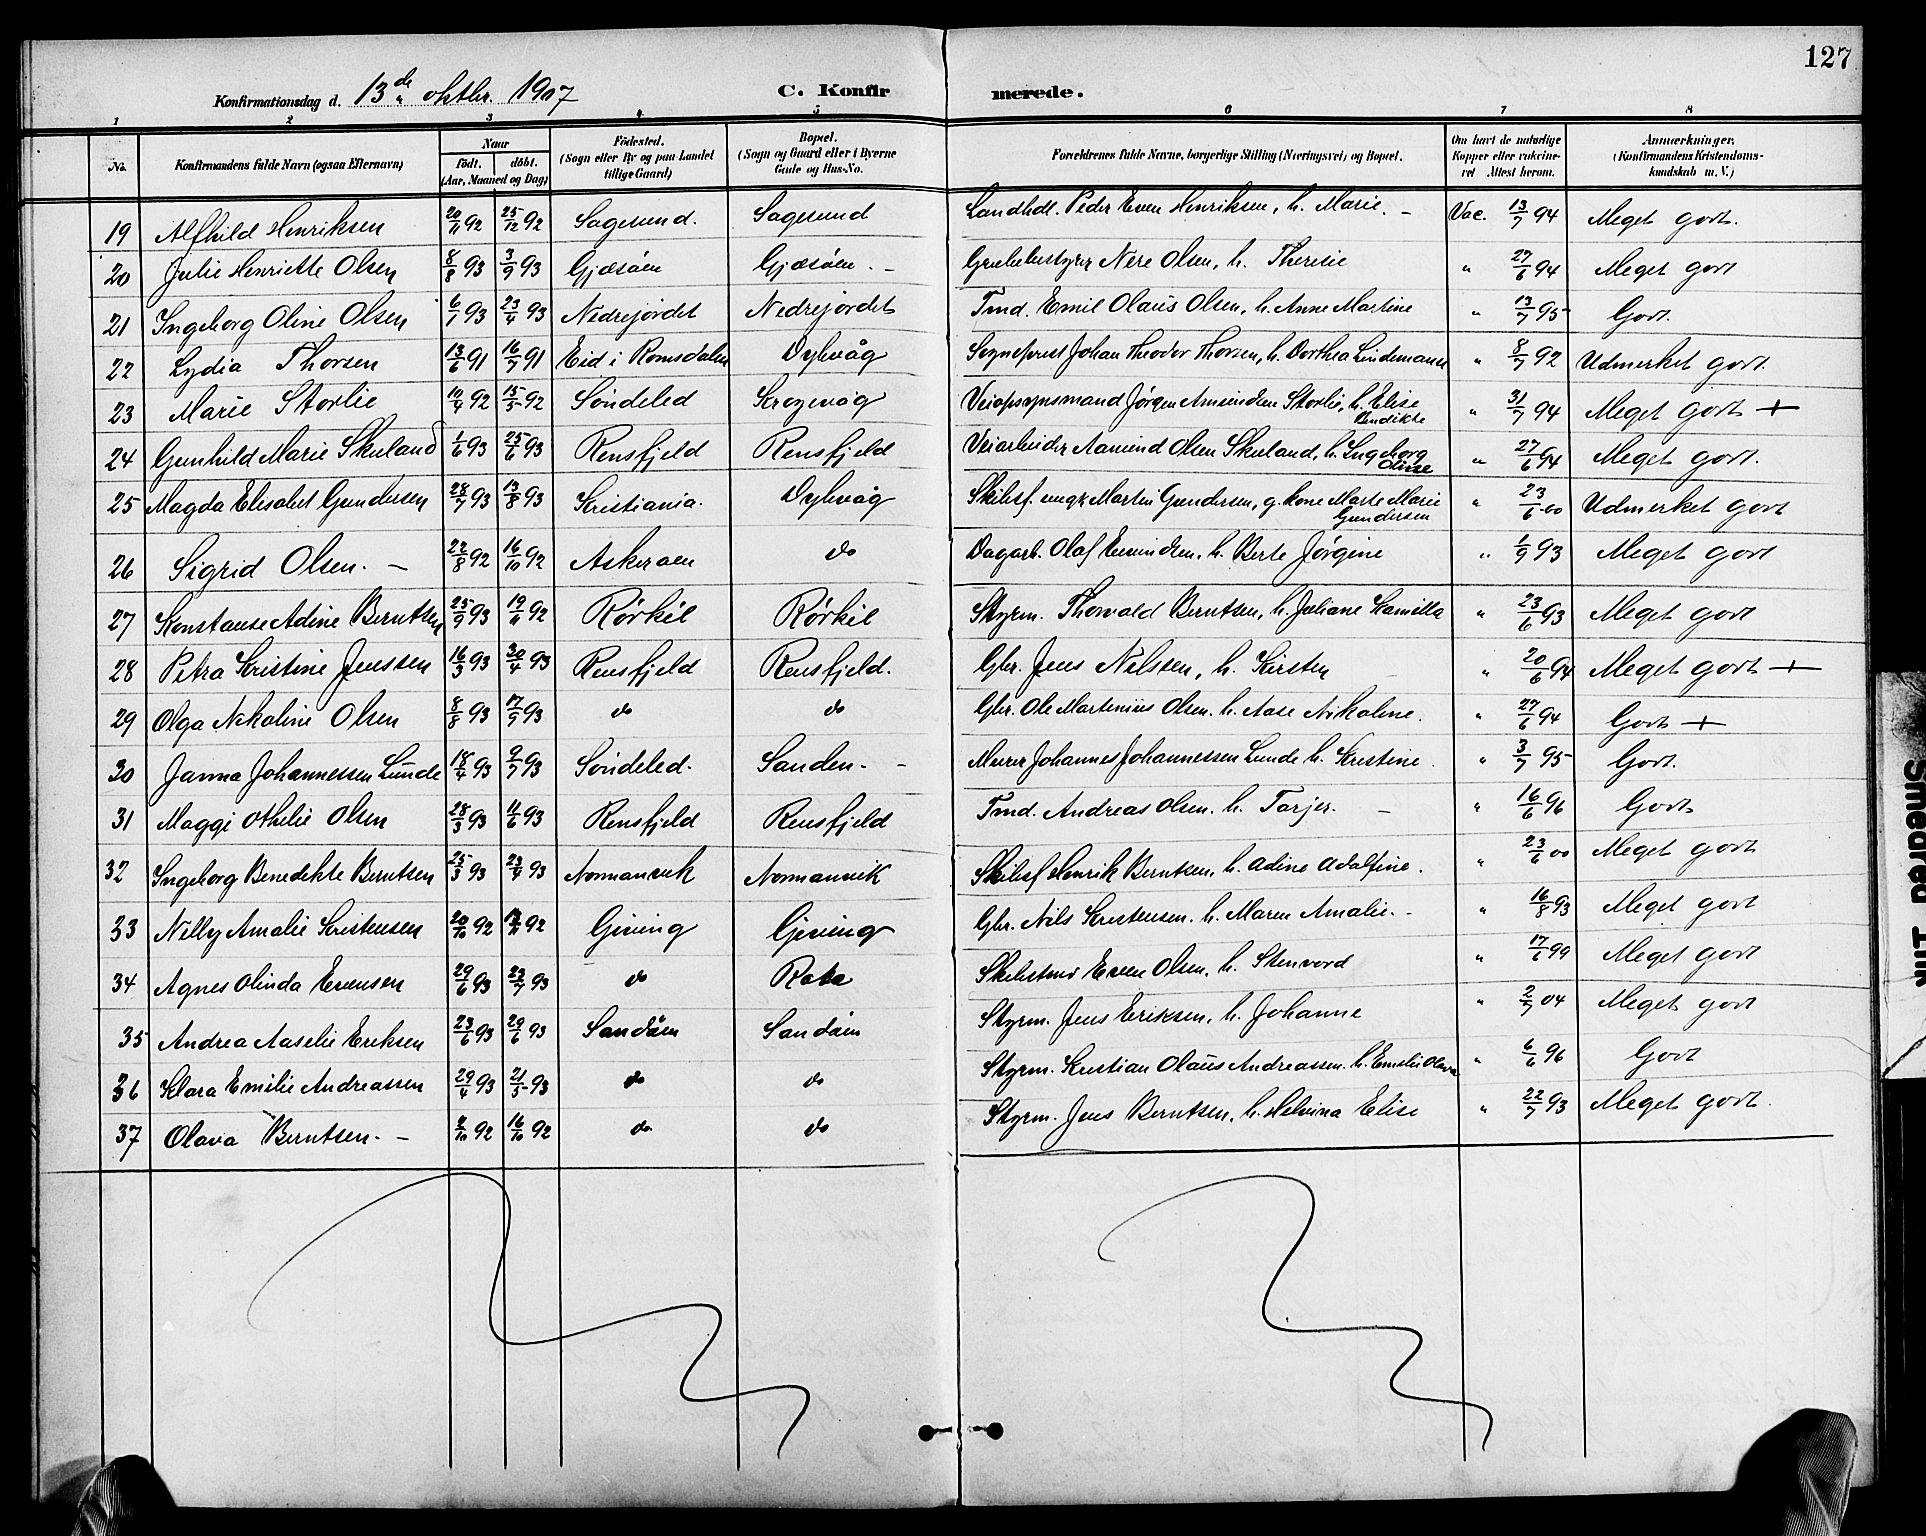 127
Konfirmationsdag d. 13de oktbr. 1907 C. Konfirmerede.
1 2 3 4 5 6 7 8
No. Konfirmandens fulde Navn (ogsaa Efternavn) Naar födt. döbt. (Aar, Maaned og Dag) Födested. (Sogn eller By og paa Landet tillige Gaard) Bopæl. (Sogn og Gaard eller i Byerne Gade og Hus-No. Forældrenes fulde Navne, borgerlige Stilling (Næringsvei) og Bopæl. Om havt de naturlige Kopper eller vakcineret Attest herom. Anmærkninger. (Konfirmandens Kristendomskundskab m. V.)
19 Alfhild Henriksen 20/11 92 25/12 92 Sagesund. Sagesund Landhdl. Peder Even Henriksen, h. Marie. - Vac. 13/7 94 Meget godt.
20 Julie Henriette Olsen 8/8 93 3/9 93 Gjæsöen Gjæsöen. - Grubebestyrer Nere Olsen, h. Therese " 27/6 94 Meget godt
21 Ingeborg Oline Olsen 6/1 93 23/4 93 Nedrejordet Nedrejordet Tmd. Emil Olaus Olsen, h. Anne Martine " 13/7 95 Godt.
22 Lydia Thorsen 13/6 91 16/7 91 Eid i Romsdalen Dybvåg Sogneprest Johan Theodor Thorsen, h. Dorthea Lindemann " 8/7 92 Udmerket godt.
23 Marie Storlie 10/4 92 15/5 92 Söndeled Krogevåg Veiopsynsmand Jørgen Amundsen Storli, h. Elise Bendikte " 31/7 94 Meget godt +
24 Gunhild Marie Skuland 1/6 93 25/6 93 Rensfjeld Rensfjeld Veiarbeider Aamund Olsen Skuland, h. Ingeborg Olisse " 27/6 94 Meget godt.
25 Magda Elisabet Gundersen 28/7 93 13/8 93 Kristiania. Dybvåg Skibsf. ungk. Martin Gundersen, g. kone Marte Marie Gundersen " 23/6 00 Udmerket godt
26 Sigrid Olsen. - 22/8 92 16/10 92 Askerøen do Dagarb. Olaf Evindsen, h. Berte Jørgine " 1/9 93 Meget godt
27 Konstanse Adine Berntsen 25/9 93 19/11 92 Rörkil Rörkil Styrm. Thorvald Berntsen, h. Juliane Kamilla " 23/6 93 Meget godt
28 Petra Kristine Jenssen 16/3 93 30/4 93 Rensfjeld Rensfjeld. Gbr. Jens Nilssen, h. Kirsten " 20/6 94 Meget godt +
29 Olga Nikoline Olsen 8/8 93 17/9 93 do do Gbr. Ole Martenius Olsen. h. Aase Nikoline. " 27/6 94 Godt +
30 Janna Johannessen Lunde 18/4 93 9/7 93 Söndeled. Sanden. - Murer Johannes Johannessen Lunde h. Kristine. " 3/7 95 Godt.
31 Maggi Othelie Olsen 28/3 93 11/6 93 Rensfjeld Rensfjeld Tmd. Andreas Olsen. h. Tarjer. - " 16/6 96 Godt
32 Ingeborg Benedikte Berntsen 25/3 93 23/4 93 Normanvik Normanvik Skibsf Henrik Berntsen, h. Adine Adolfine. " 23/6 00 Meget godt
33 Nilly Amalie Kristensen 20/10 92 92 Gjeving Gjeving Gbr. Nils Kristensen. h. Maren Amalie. - " 16/8 93 Meget godt
34 Agnes Olinda Evensen 29/6 93 23/7 93 do Rota Skibstmr Even Olsen. h. Stenvord " 17/6 99 Meget godt
35 Andrea Aaselie Eriksen 23/6 93 29/6 93 Sandöen Sandöen Styrm. Jens Eriksen, h. Johanne " 2/7 04 Meget godt
36 Klara Emilie Andreassen 29/4 93 21/5 93 do do Styrm. Kristian Olaus Andreassen. h. Emelie Olava " 6/6 96 Godt
37 Olava Berntsen. - 2/10 92 16/10 92 do. do Styrm. Jens Berntsen, h. Helmina Elise " 22/7 93 Meget godt.